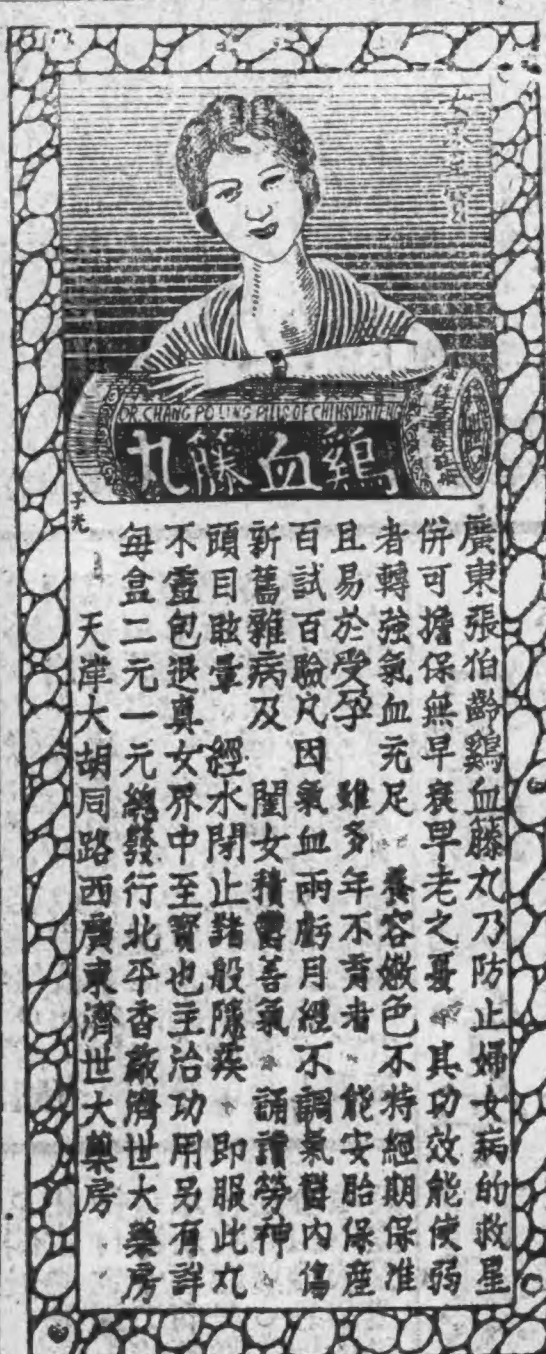 女界至寶
DR. CHANG PO LING PILLS OF CHIHSUEHTENG
鷄血籐丸
子光
廣東張伯齡鷄血籐丸乃防止婦女病的救星
併可擔保無早衰早老之憂 其功效能使弱
者轉強氣血充足 養容嫩色不特經期保准
且易於受孕 雖多年不育者 能安胎保產
百試百驗凡因氣血兩虧月經不調氣鬱內傷
新舊雜病及 閨女積鬱善氣 誦讀勞神
頭目眩暈 經水閉止諸般隱疾 即服此丸
不靈包退真女界中至寶也主治功用另有詳
每盒二元一元總發行北平香廠濟世大藥房
天津大胡同路西廣東濟世大藥房